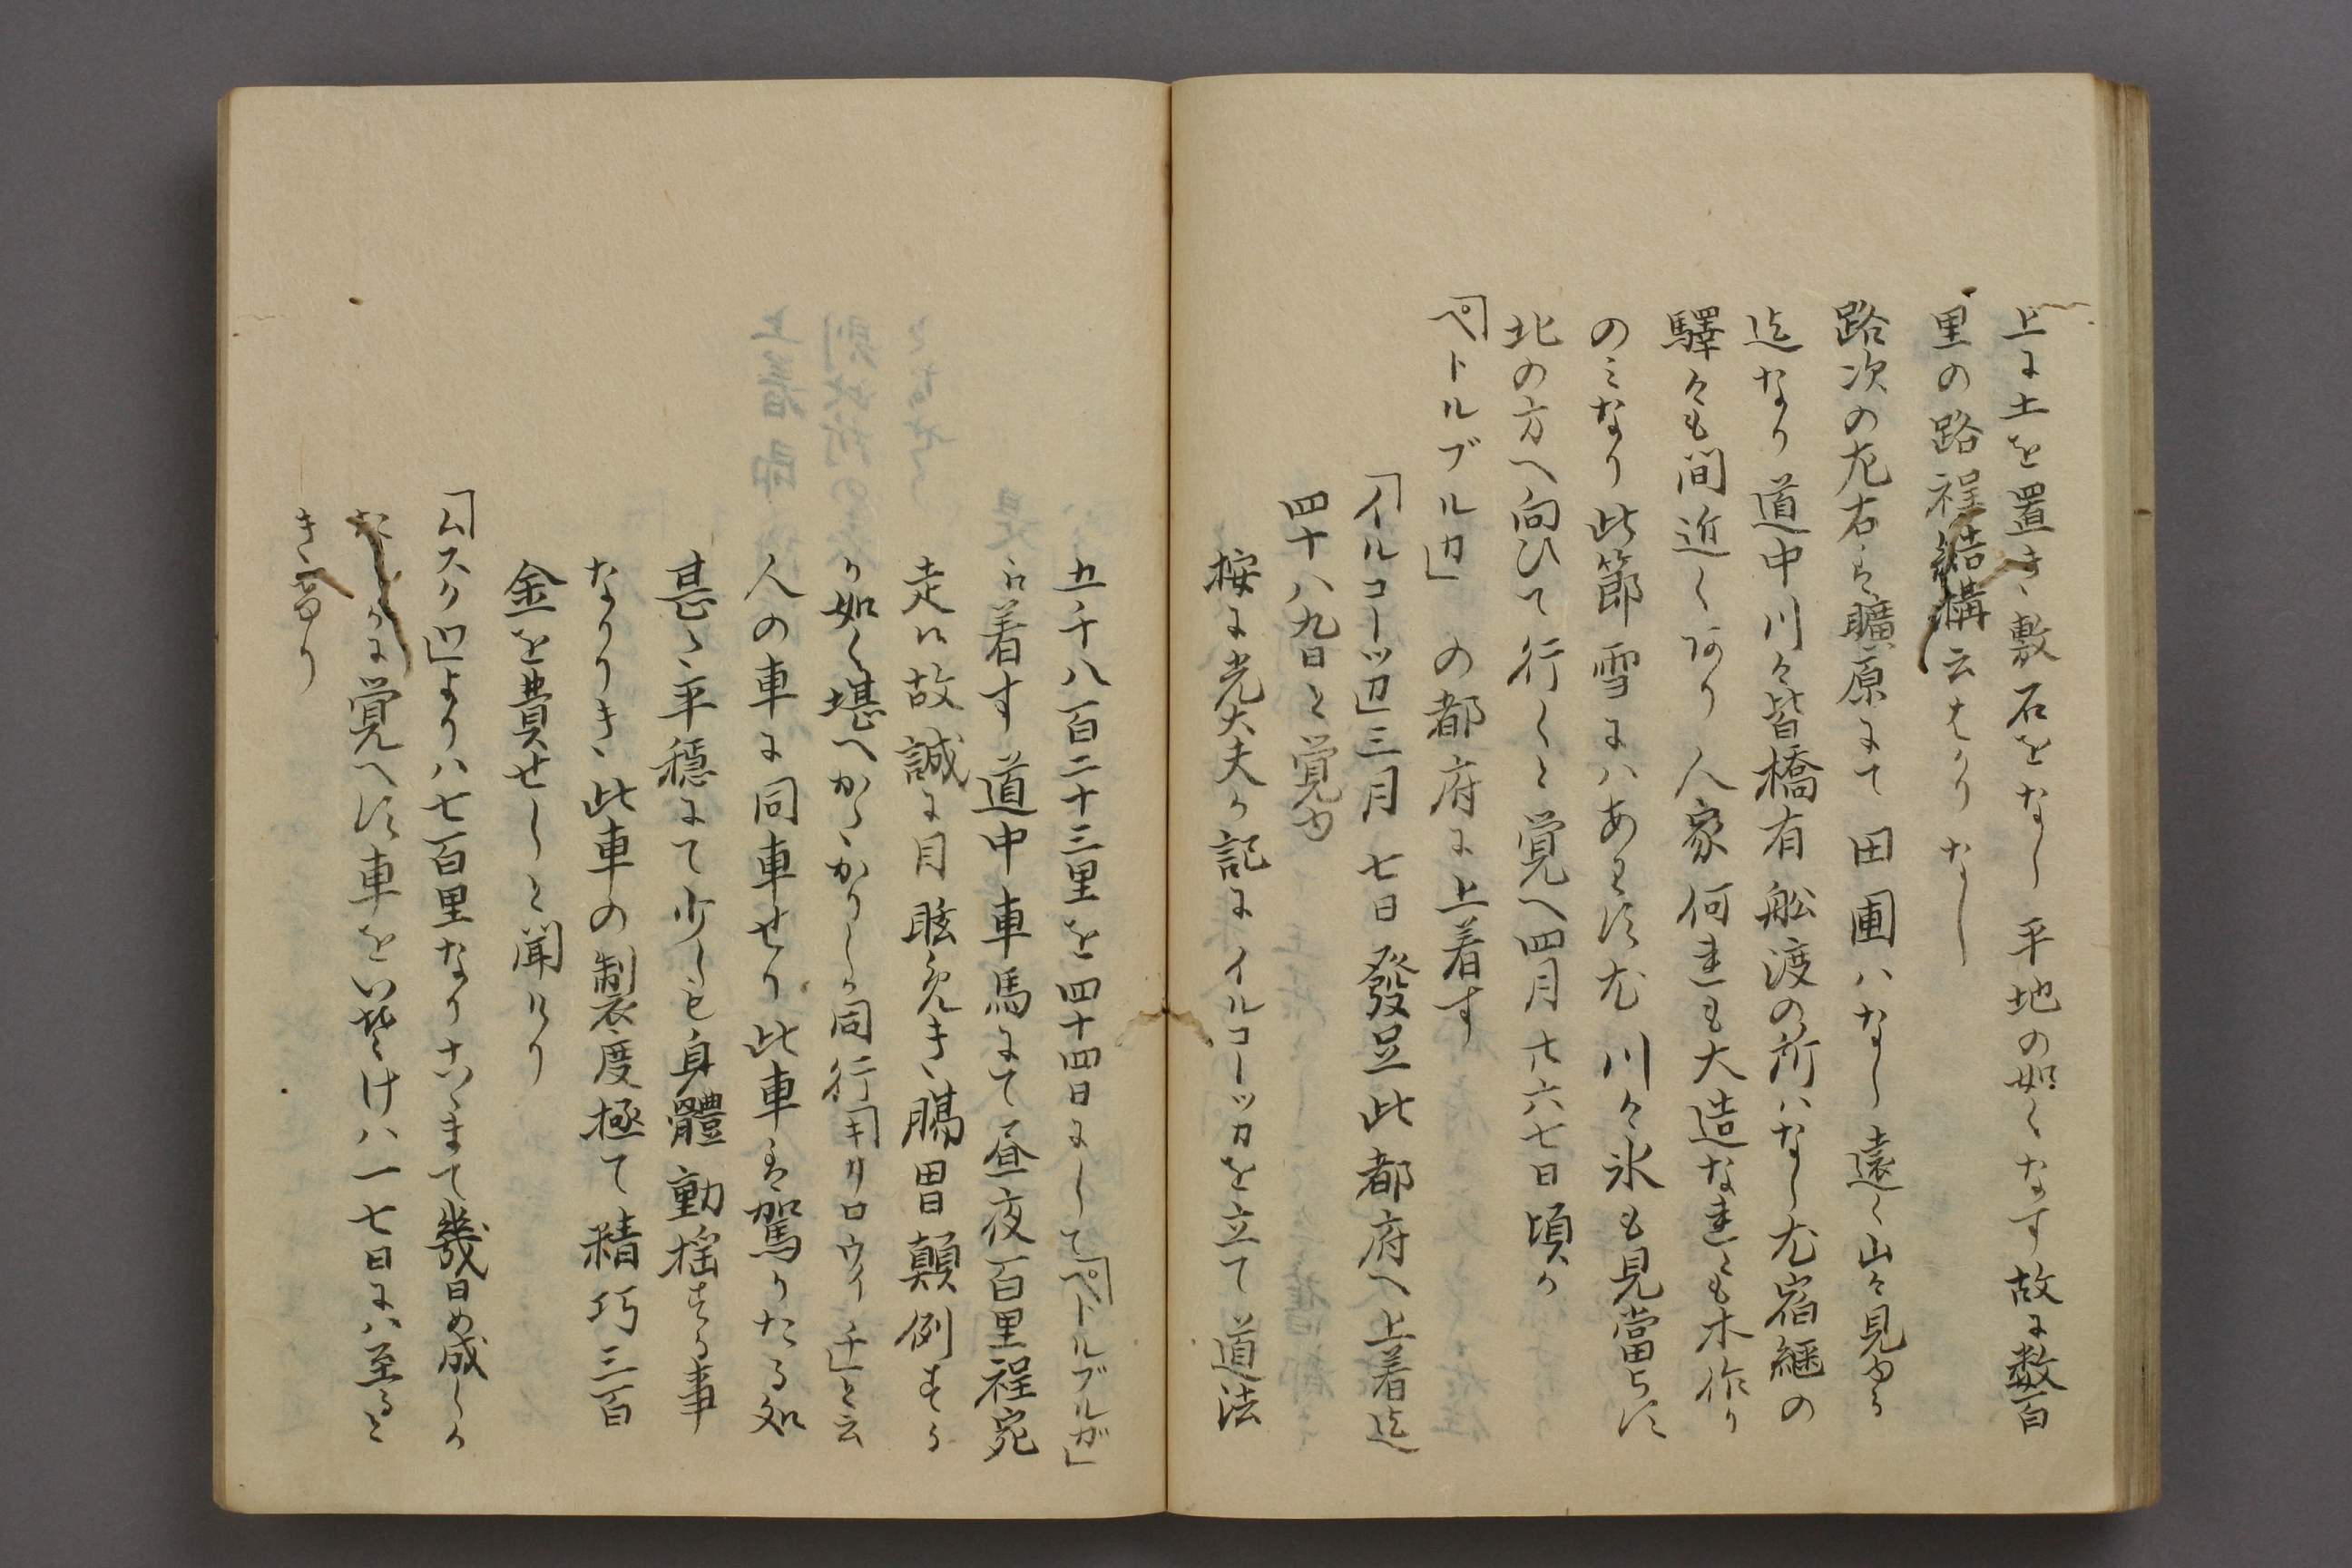 上に土を置き敷石をなし平地の如くなす故に数百
里の路程結構云はかりなし
路次の左右は曠原にて田圃ハなし遠く山々見ゆる
迄なり道中川々皆橋有舩渡の所ハなし尤宿継の
驛々も間近くあり人家何れも大造なれとも木作り
のミなり此節雪にハあらす尤川々氷も見當らす
北の方へ向ひて行しと覚へ四月廿六七日頃か
「ペトルブルカ」の都府に上着す
「イルコーツカ」三月七日發足此都府へ上着迄
四十八九日と覚ゆ
按に光太夫か記にイルコーツカを立て道法
五千八百二十三里を四十四日にして「ペトルブルガ」
に着す道中車馬にて昼夜百里程宛
走に故誠に目眩めき腸胃顛倒する
か如く堪へかたかりしか同行「キリロウイチ」と云
人の車に同車せり此車は駕りたる処
甚た平穏にて少しも身體動揺する事
なかりき此車の製度極て精巧三百
金を費せしと聞けり
「ムスクワ」よりハ七百里なりこれまて幾日め成しか
たしかに覚へす車をいそけハ一七日にハ至ると
き